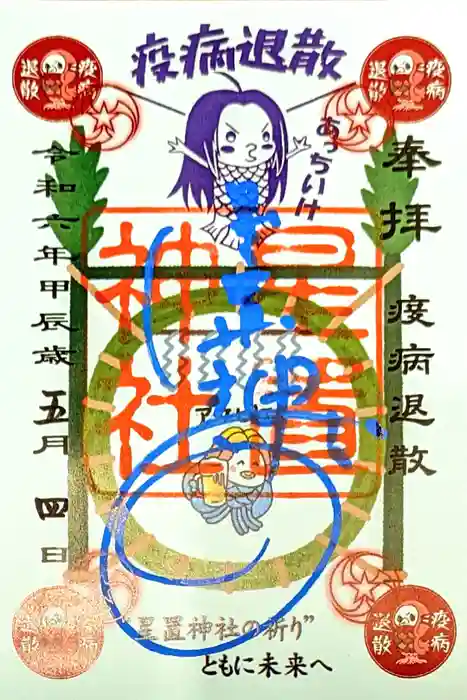 疫病退散
疫病
退散
疫病
退散
あっちいけ
奉拝 疫病退散
星置
神社
令和六年甲辰歳五月四日
疫病
退散
疫病
退散
"星置神社の祈り"
ともに未来へ